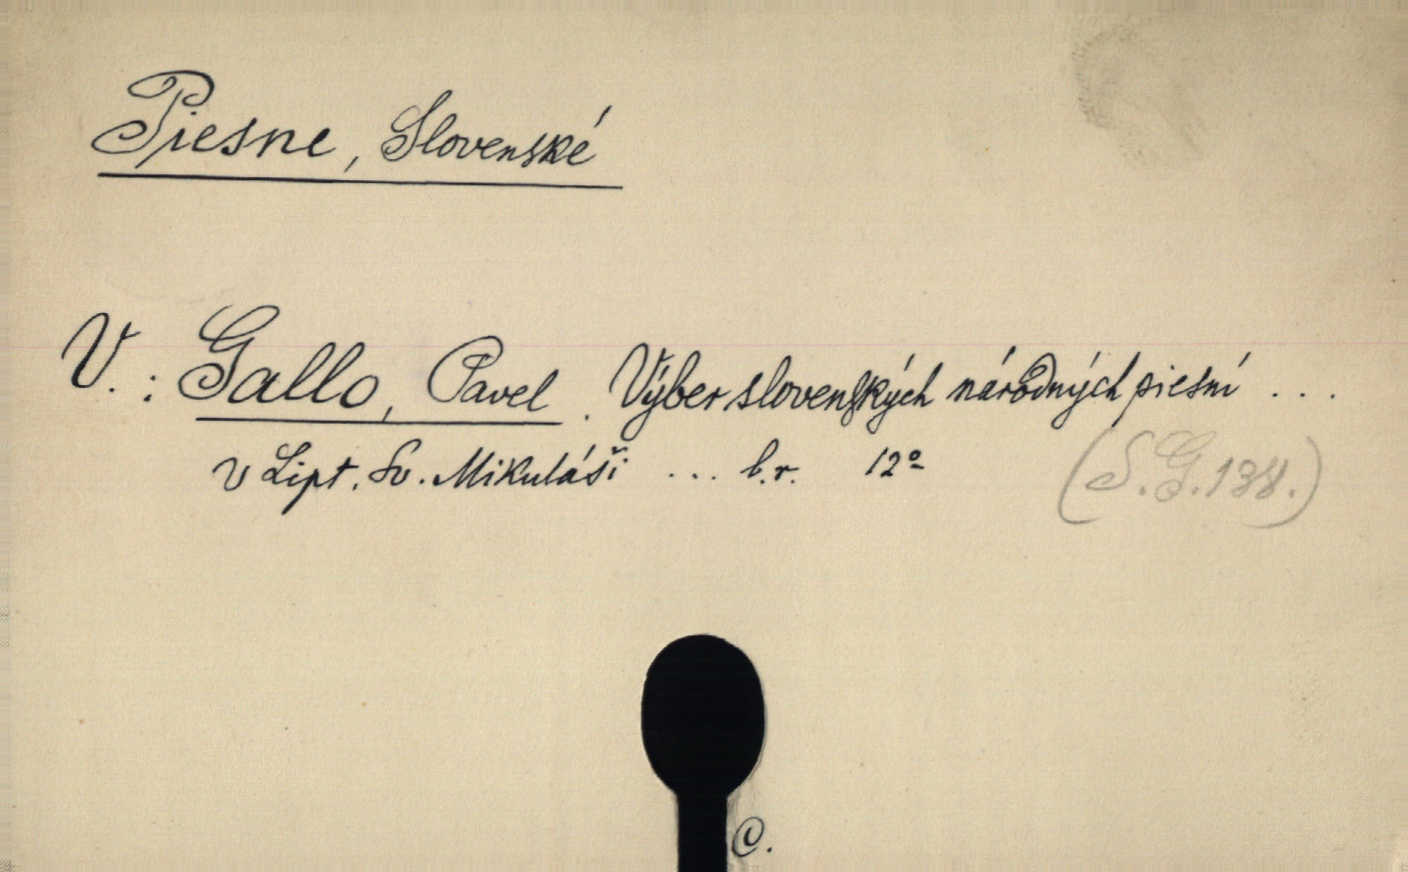 Piesne, Slovenské
V.: Gallo, Pavel. Výber slovenských národných piesní ...
v Lipt. Sv. Mikuláši ... b.r. 12º
(S.G.138.)
C.